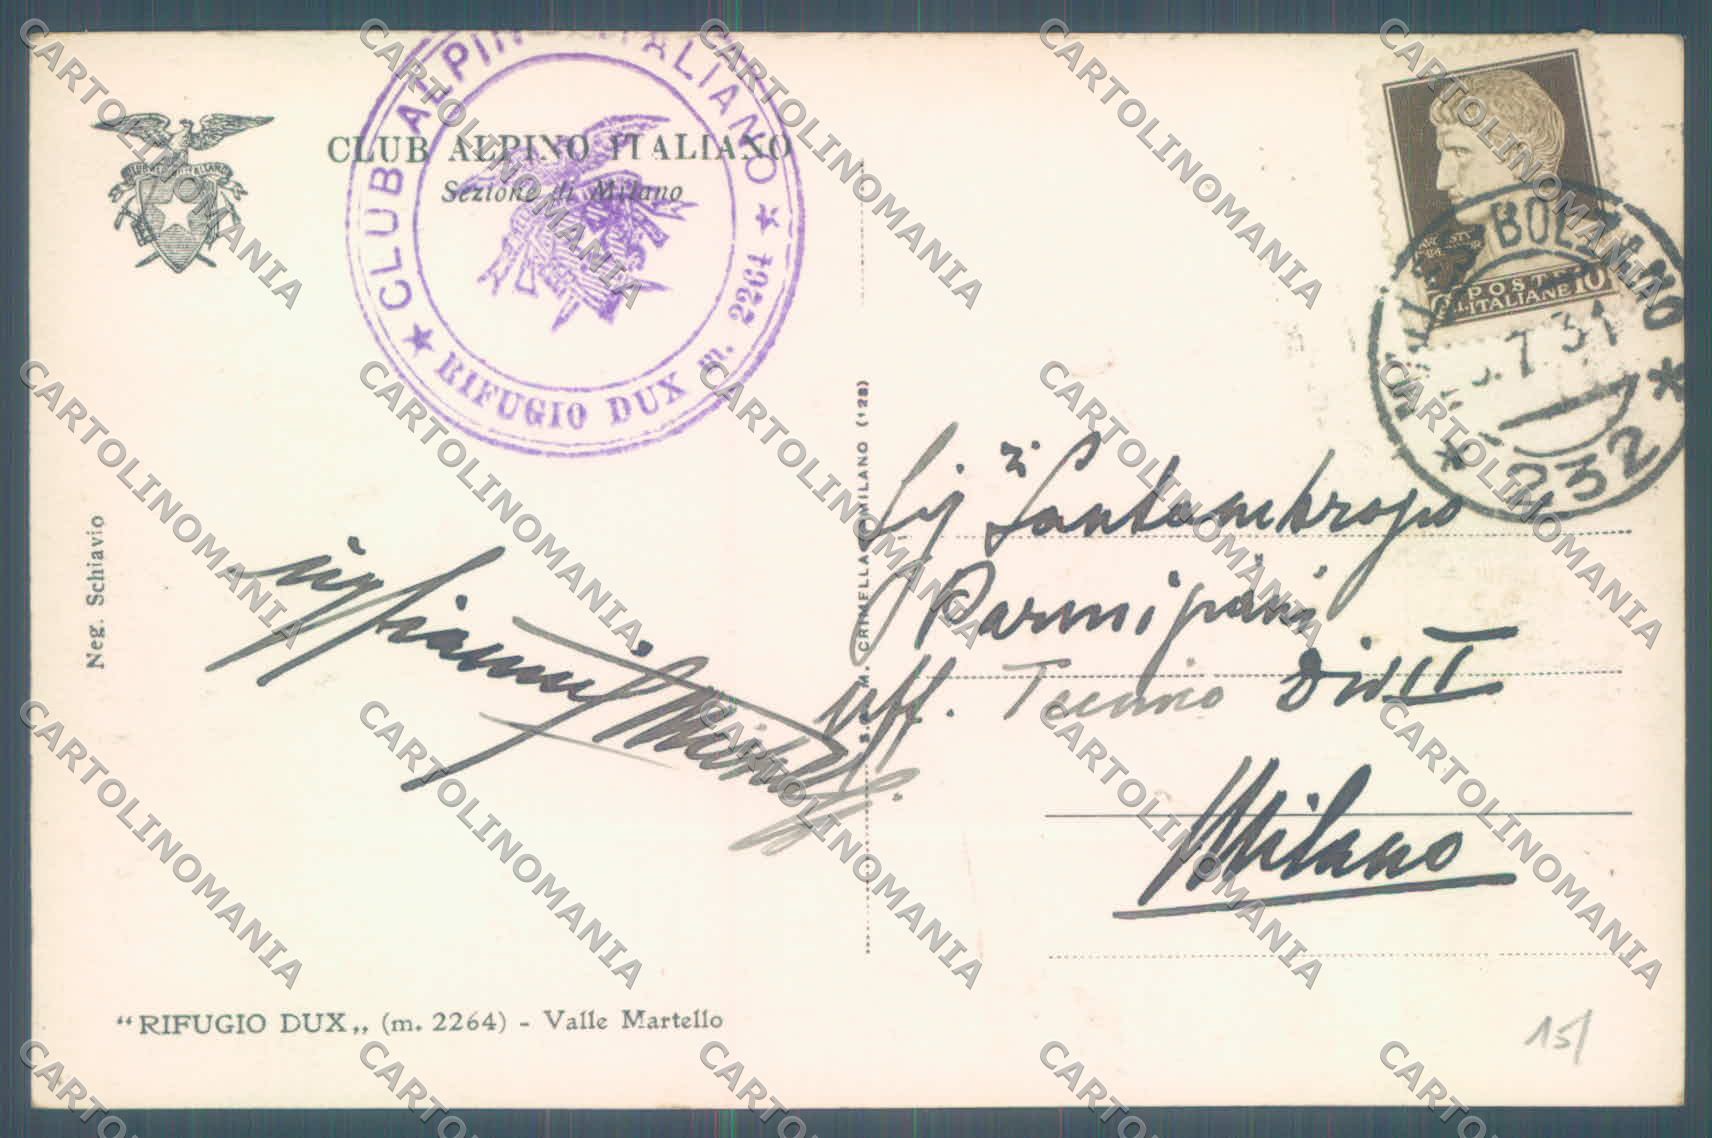 CLUB ALPINO ITALIANO
Sezione di Milano
CLUB ALPINO ITALIANO
RIFUGIO DUX m. 2264
Neg. Schiavio
"RIFUGIO DUX„ (m. 2264) - Valle Martello
CRIMELLA - MILANO (128)
POSTE
ITALIANE 10
BOLZANO
7.31
232
Sig Santambrogio
Uff. Div II
Milano
15/
CARTOLINOMANIA